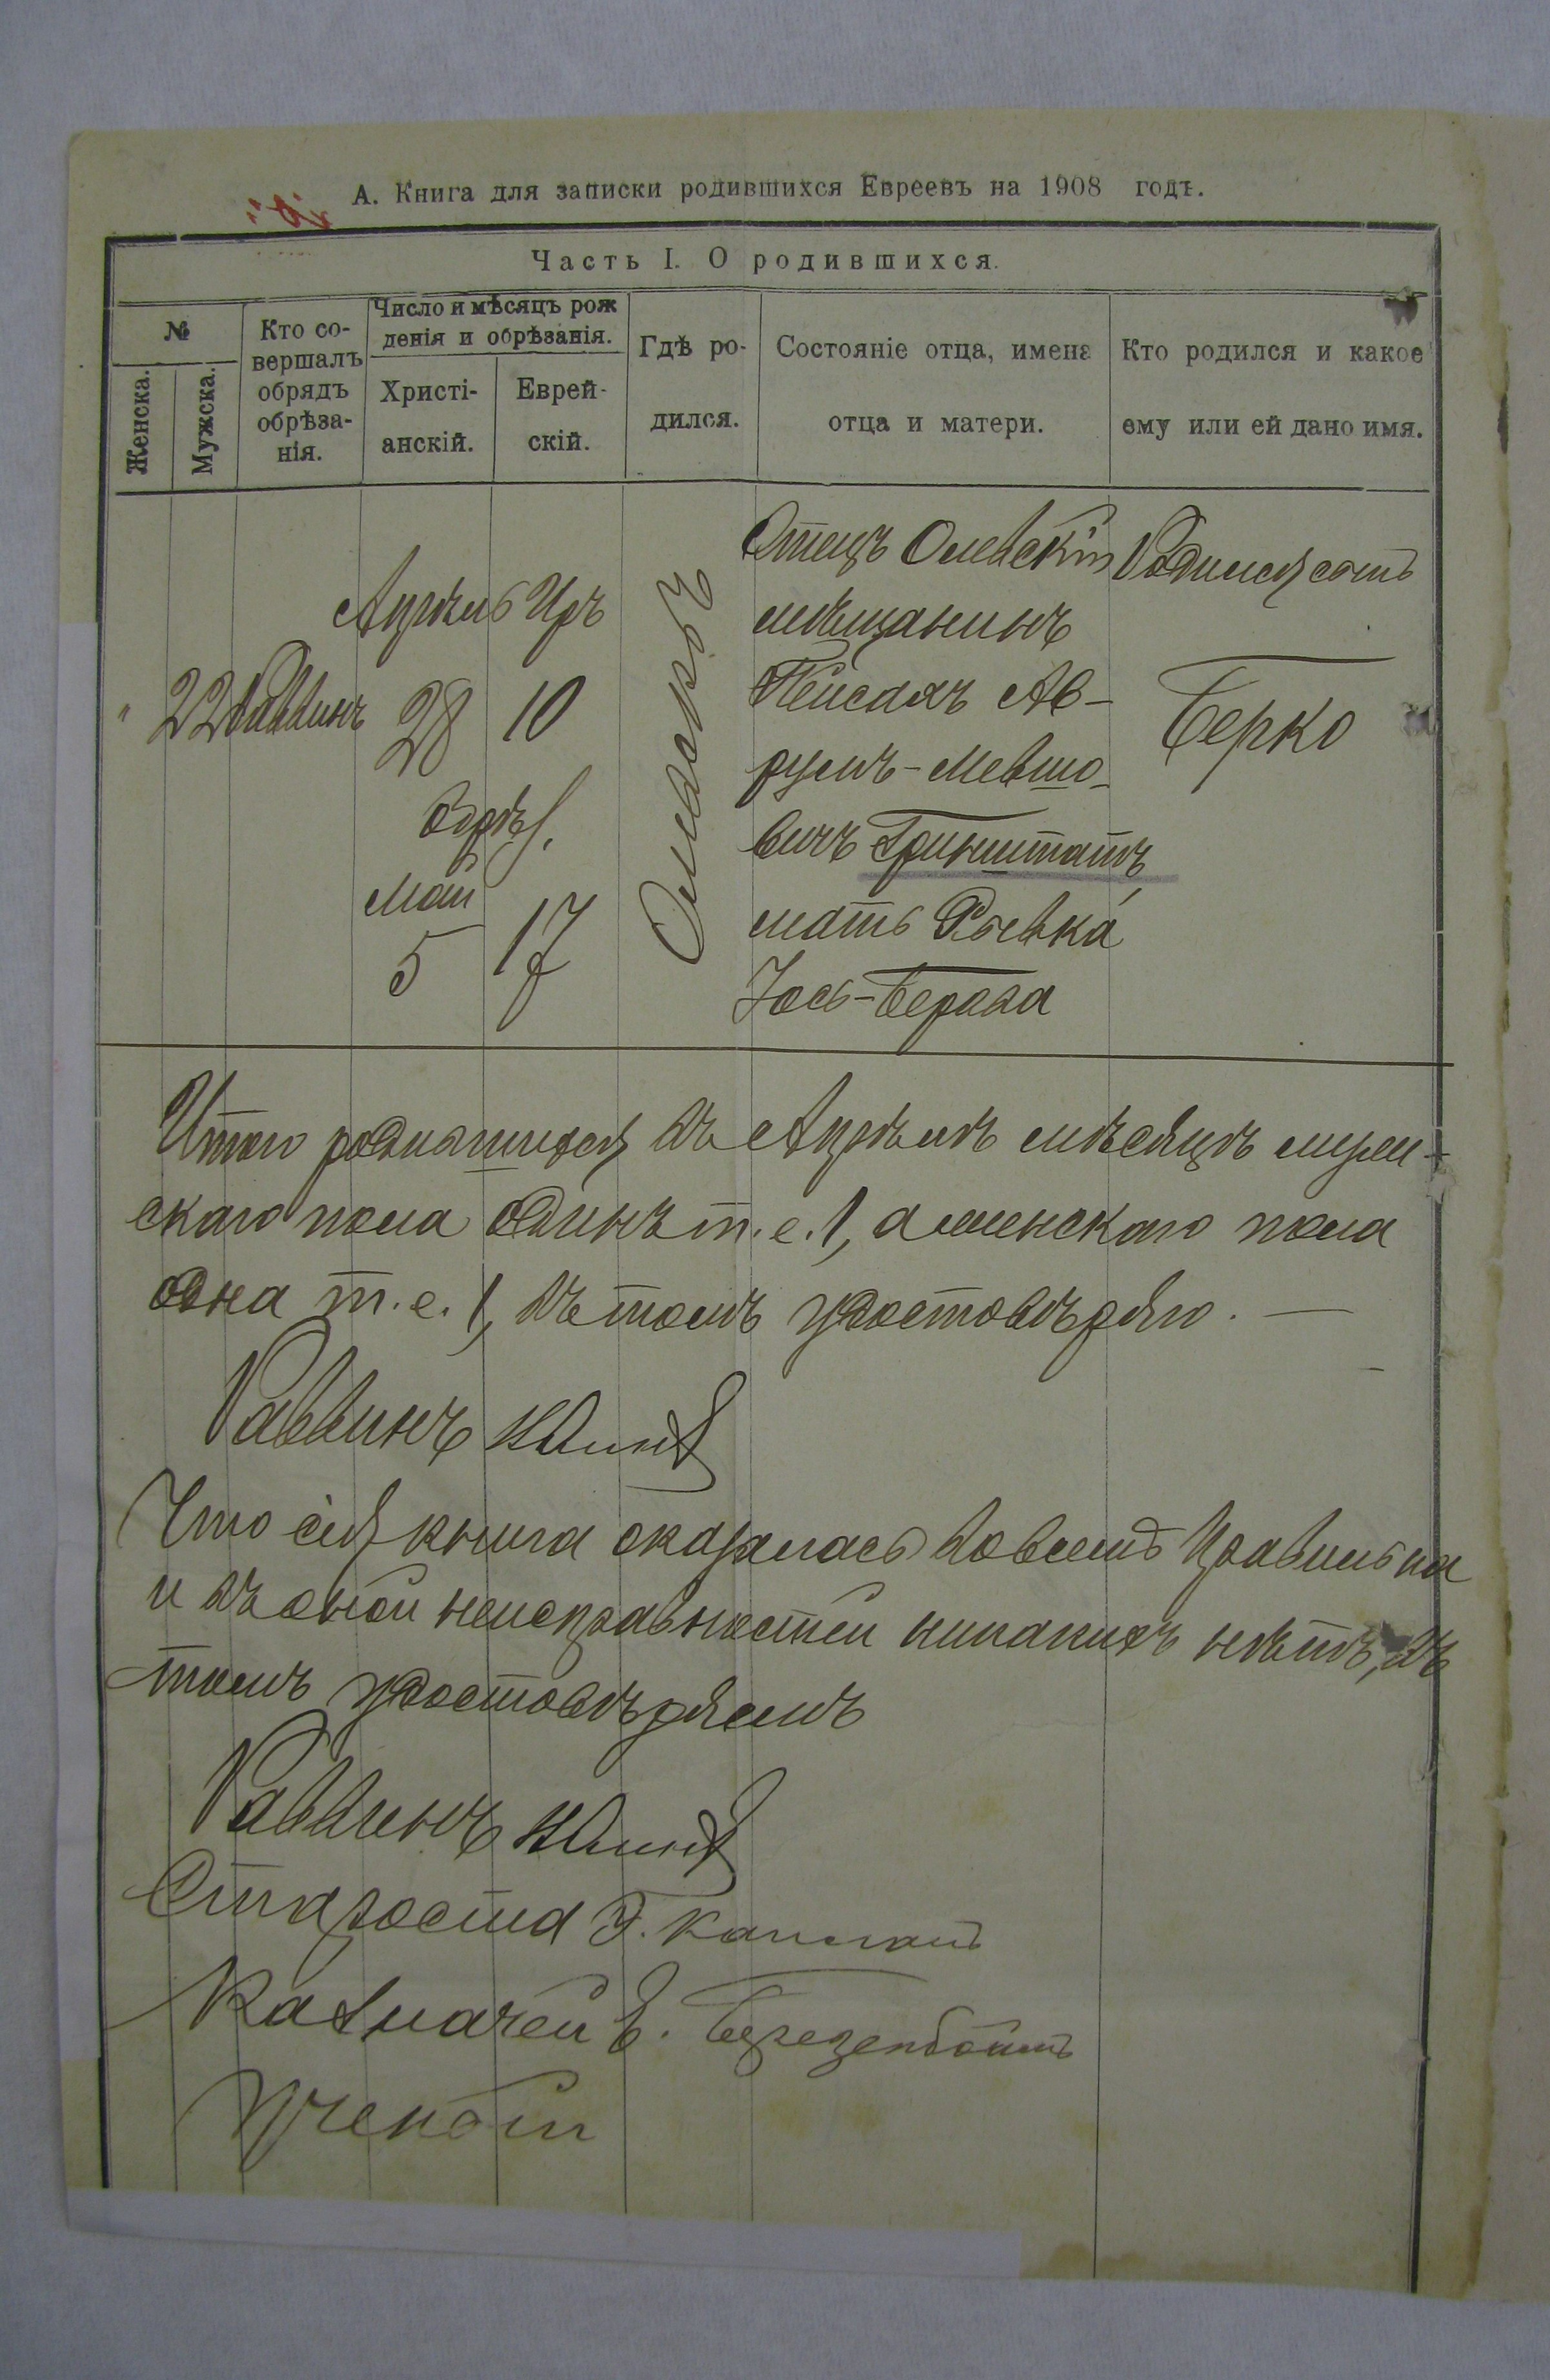 А. Книга для записки родившихся Евреевъ на 1908 годъ.
Часть I. О родившихся.
№
Женска.
Мужска.
Кто со-
вершалъ
обрядъ
обрѣза-
нія.
Число и мѣсяцъ рож
денія и обрѣзанія.
Христі-
анскій.
Еврей-
скій.
Гдѣ ро-
дился.
Состояніе отца, имена
отца и матери.
Кто родился и какое
ему или ей дано имя.
" 22 Раввинъ
Апрѣль Иръ
28 10
Обрѣз.
Май
5 17
Олевскъ
Отецъ Олевскій
мѣщанинъ
Пейсахъ Ав-
румъ-Мевшо-
вичъ Гринштатъ
мать Рывка
Іось-Берова
Родился сынъ
Берко
Итого родившихся въ Апрѣлѣ мѣсяцѣ муж-
скаго пола одинъ т.е. 1, а женскаго пола
одна т.е. 1, въ томъ удостовѣряю. —
Раввинъ
Что сія книга оказалась вовсемъ правильна
и въ оной неисправностей никакихъ нѣтъ, въ
томъ удостовѣряемъ
Раввинъ
Староста
Казначей
Ученый